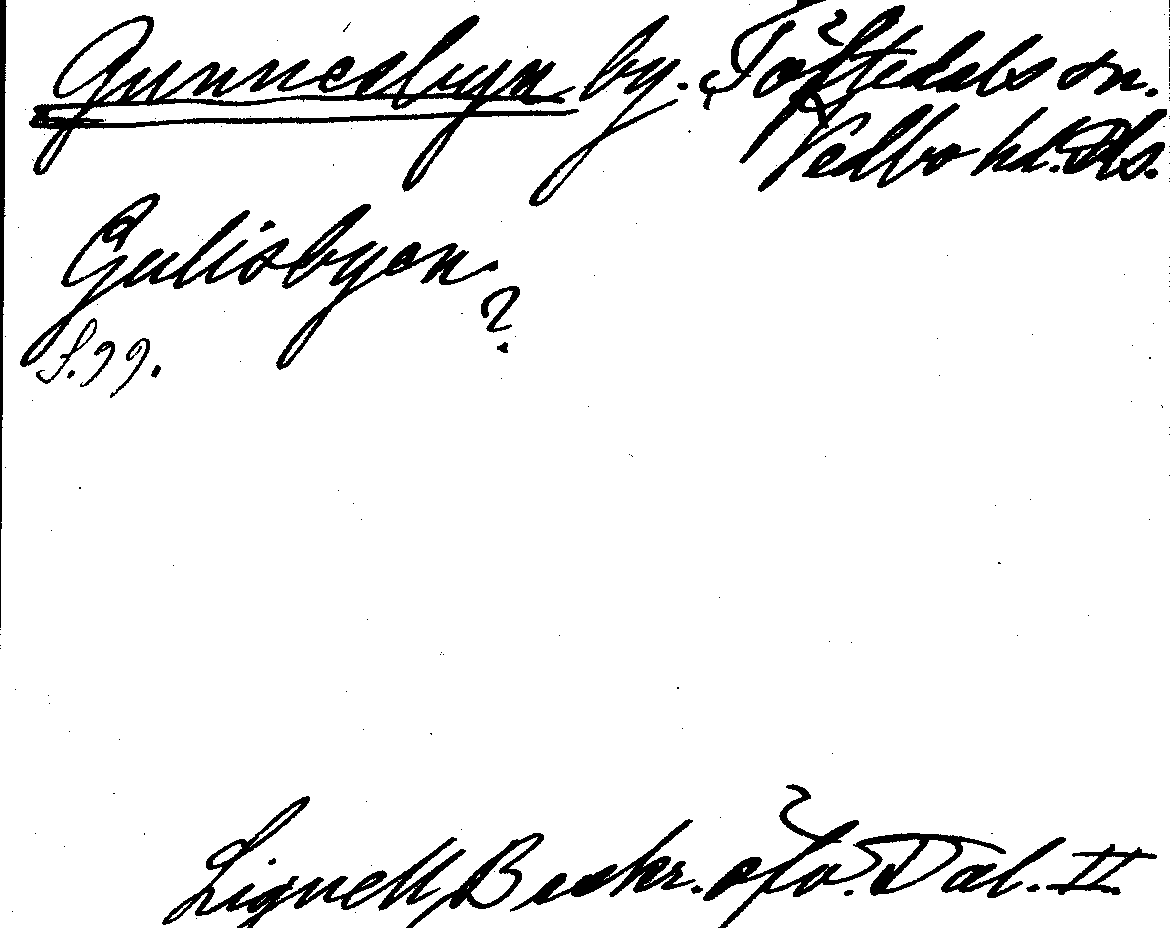 Gunnesbyn by. Töftedals sn.
Vedbo hd. Dls.
Gulisbyen
?
S. 99.
Lignell, Beskr. öfv. Dal. II